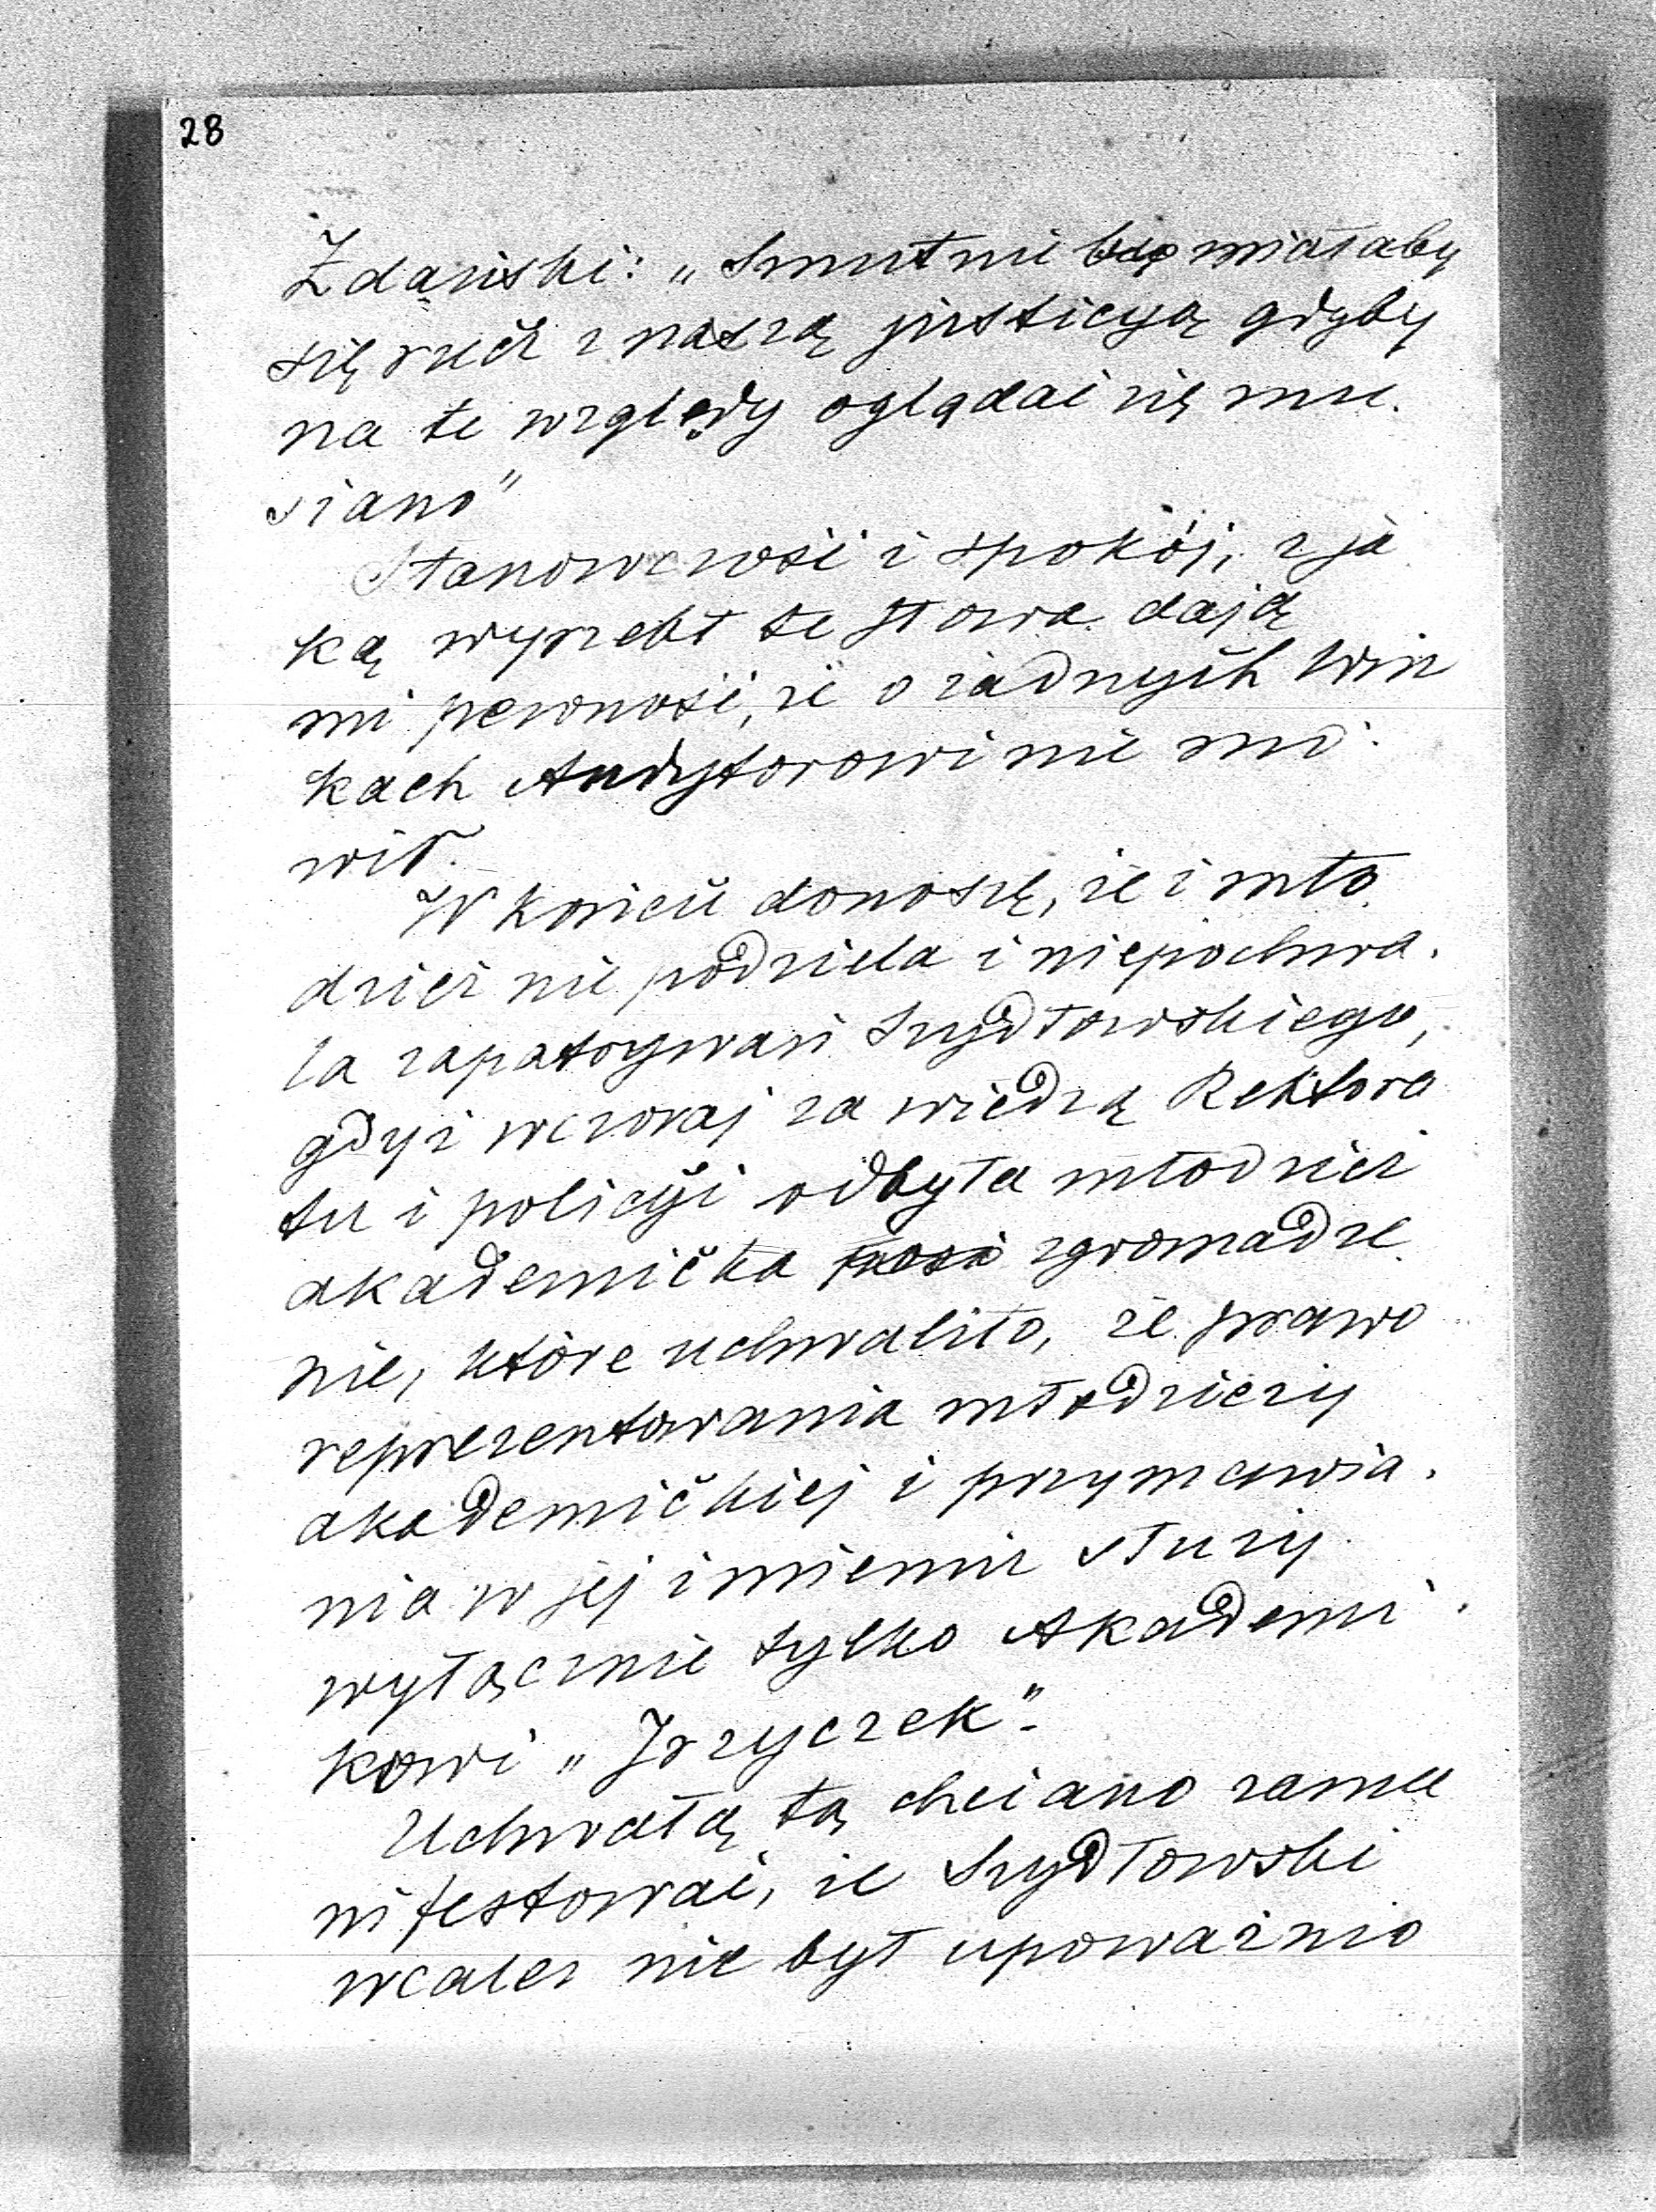 28
Żdański: „Smutnie miałaby
się rzecz z naszą justicyą gdyby
na te względy oglądać się mu.
siano"
Stanowczość i spokój, z ja
ką wyrzekł te słowa dają
mi pewność, że o żadnych win
kach Audytorowi nie mó
wił.
W końcu donoszę, że i mło
dzież nie podziela i niepochwa.
la zapatrywań Szydłowskiego,
gdyż wczoraj za wiedzą Rektora
tu i policyi odbyła młodzież
akademicka zgromadze
nie, które uchwaliło, że prawo
reprezentowania młodzieży
akademickiej i przymawia.
nia w jej imieniu służy
wyłącznie tylko Akademi
kowi „Jrzyczek".
Uchwałą tą chciano zama
nifestować, że Szydłowski
wcalez nie był upoważnio